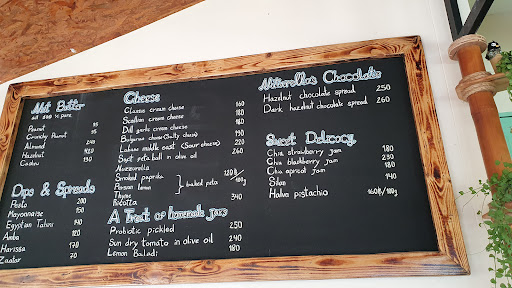 Nut Butter
all are % pure
Peanut 95
Crunchy Peanut 95
Almond 240
Hazelnut 220
Cashew 130
Dips & Spreads
Pesto 200
Mayonnaise 150
Egyptian Tahini 140
Amba 120
Harissa 170
Zaatar 70
Cheese
Classic cream cheese 160
Scallion cream cheese 180
Dill garlic cream cheese 180
Bulgarian cheese (Salty cheese) 190
Labane middle east (Sour cheese) 220
Soft feta ball in olive oil 260
Mozzarella
Smoked paprika 120฿/100g
Persian lemon } baked feta
Thyme
Ricotta 340
A Treat of homemade jars
Probiotic pickled 250
Sun dry tomato in olive oil 240
Lemon Baladi 180
Nutterella's Chocolate
Hazelnut chocolate spread 250
Dark hazelnut chocolate spread 260
Sweet Delicacy
Chia strawberry jam 180
Chia blackberry jam 230
Chia apricot jam 180
Silan 140
Halva pistachio 160฿/100g